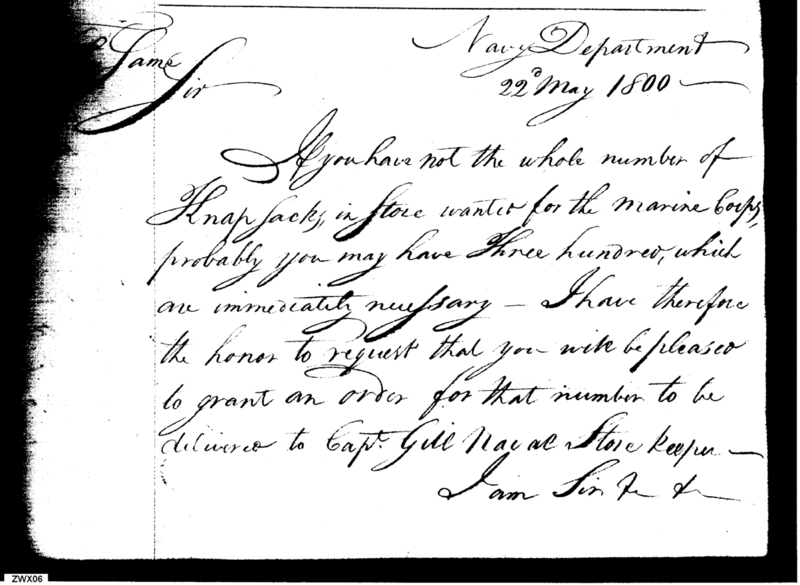 Navy Department
To Same
22d May 1800
Sir
If you have not the whole number of
Knap Sacks, in Store wanted for the Marine Corps,
probably you may have Three hundred, which
are immediately necessary — I have therefore
the honor to request that you will be pleased
to grant an order for that number to be
delivered to Capt. Gill Naval Store keeper —
I am Sir &c &c
ZWX06